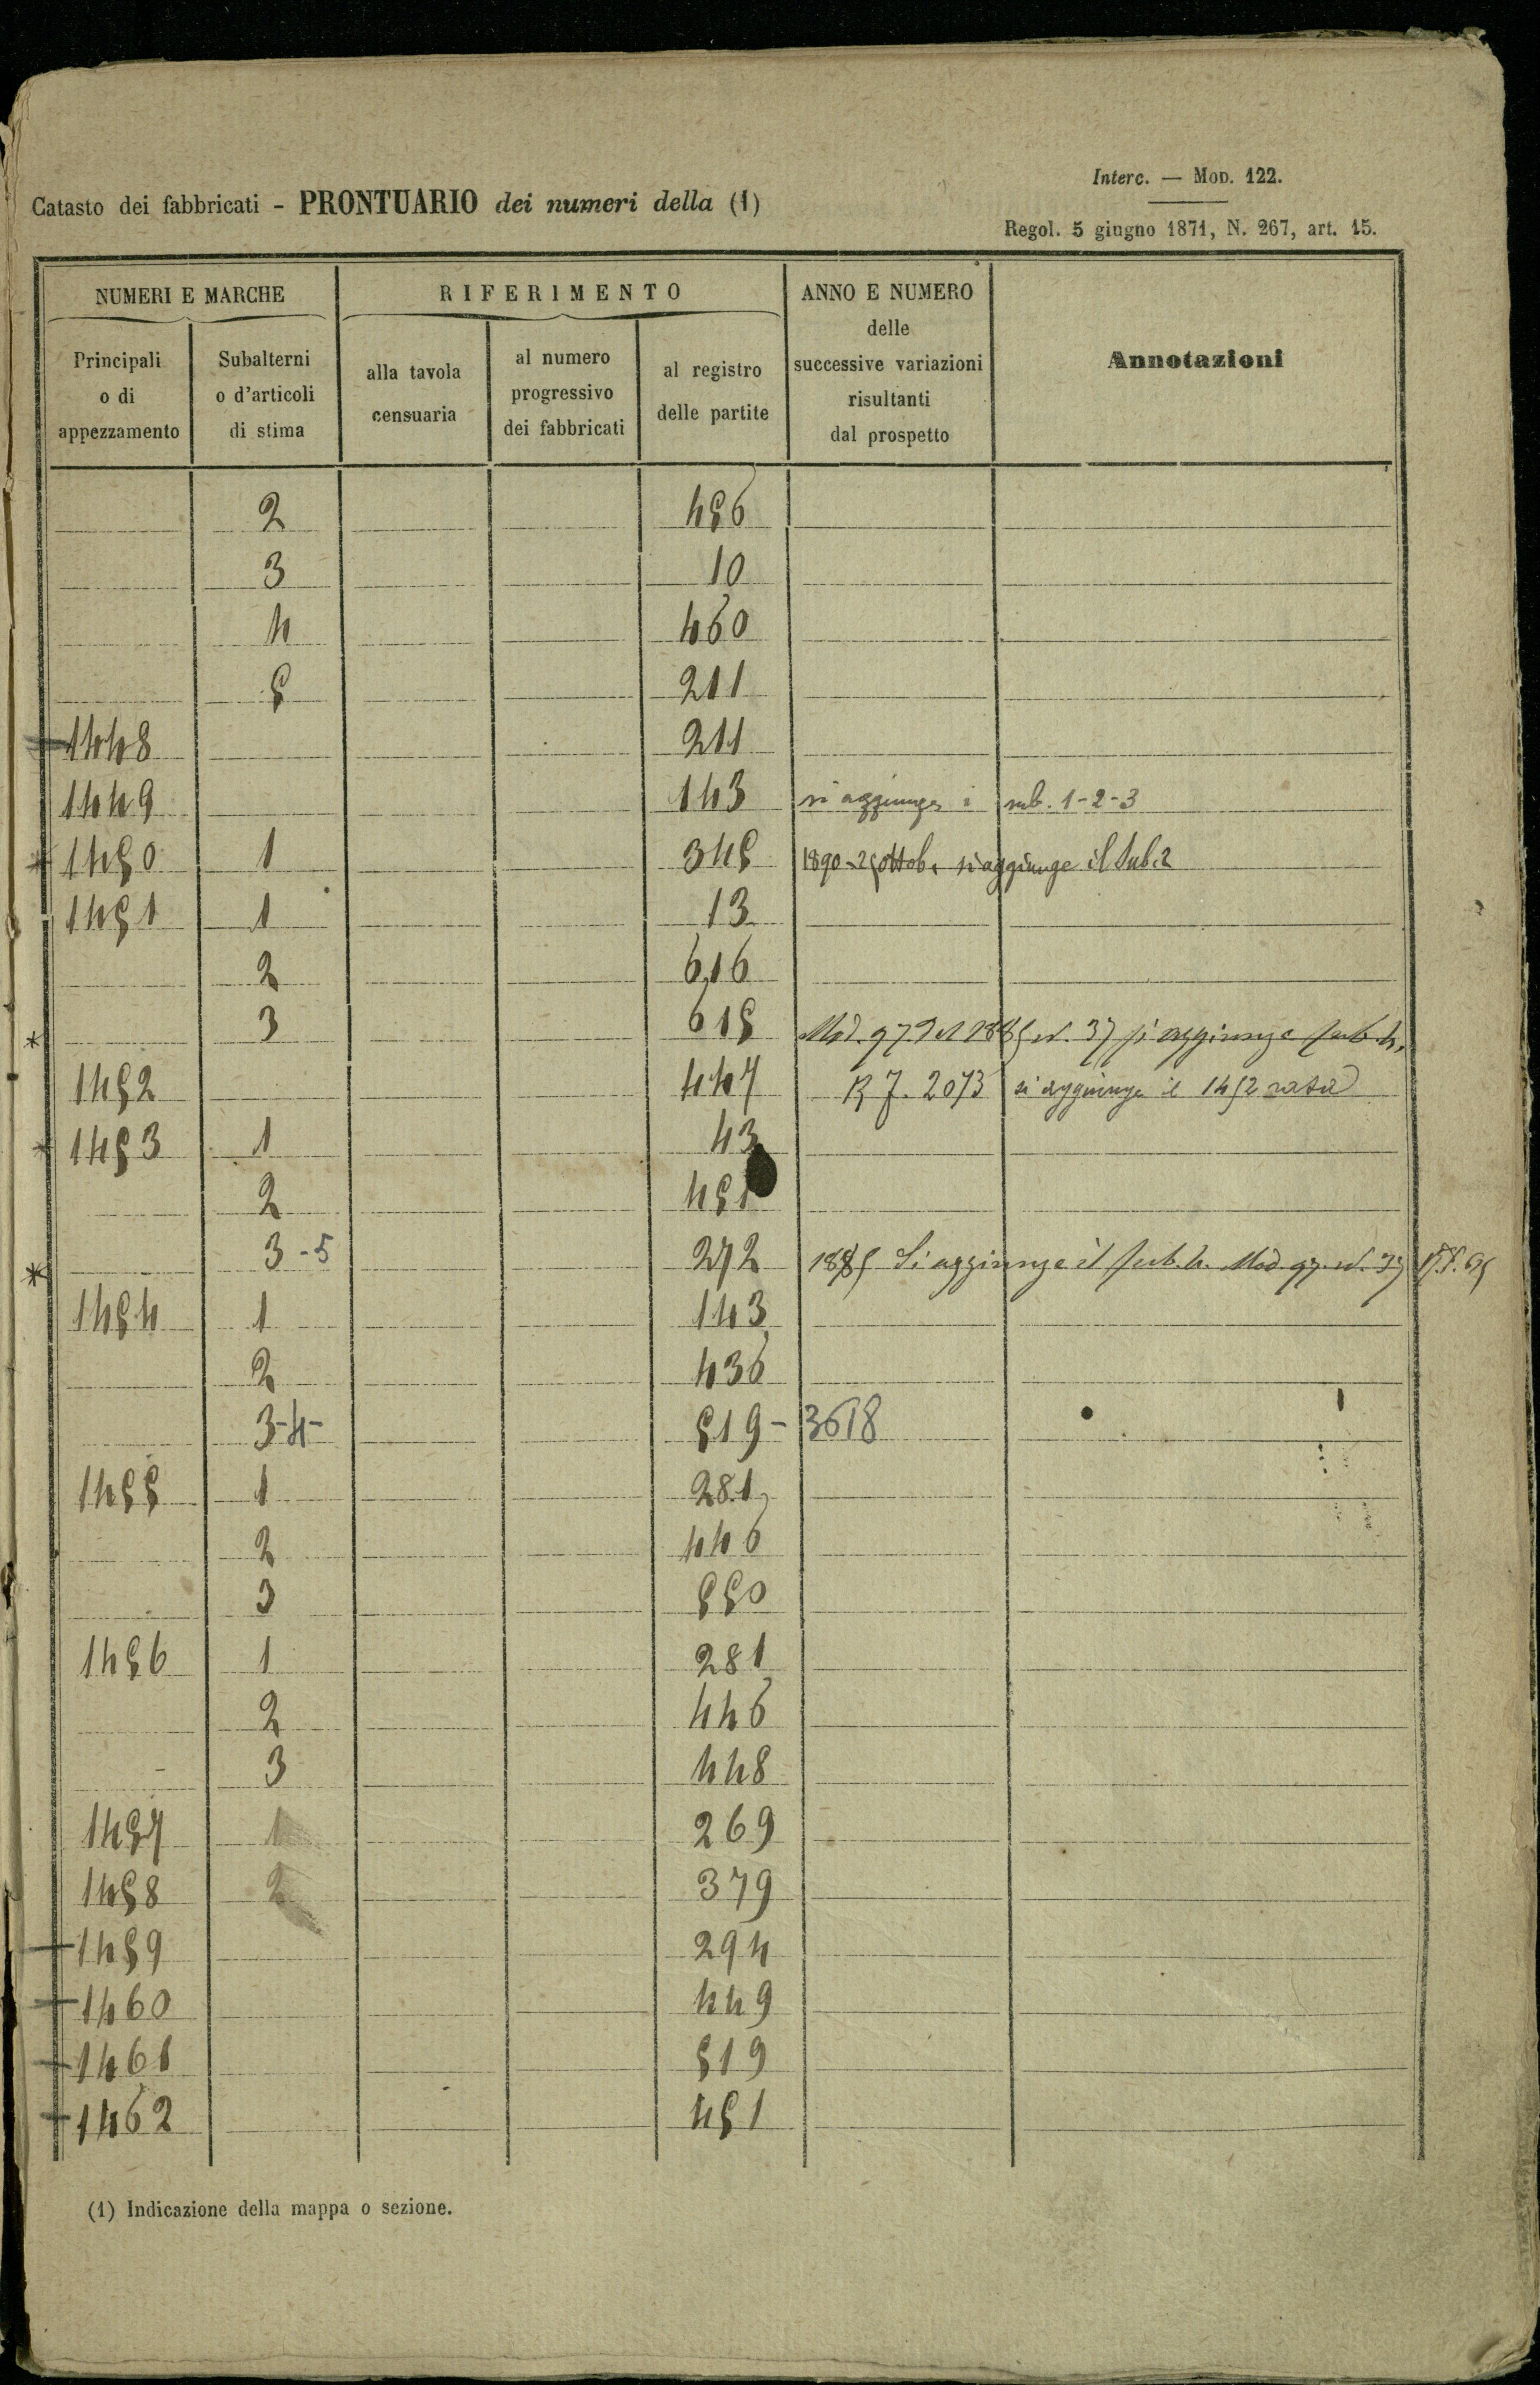 Interc. — Mod. 122.
Catasto dei fabbricati - PRONTUARIO dei numeri della (1)
Regol. 5 giugno 1871, N. 267, art. 15.
NUMERI E MARCHE
RIFERIMENTO
ANNO E NUMERO
delle
successive variazioni
risultanti
dal prospetto
Annotazioni
Principali
o di
appezzamento
Subalterni
o d'articoli
di stima
alla tavola
censuaria
al numero
progressivo
dei fabbricati
al registro
delle partite
2 456
3 10
4 460
5 211
1448 211
1449 143 si aggiunge i sub. 1-2-3
1450 1 345 1890 - 25 ottob. si aggiunge il Sub. 2
1451 1 13
2 616
3 615 Mod. 97. Del 1885 N. 37 si aggiunge sub. 4.
1452 447 R 7. 2073 si aggiunge il 1452 rata
1453 1 43
2 451
3 - 5 272 1885 Si aggiunge il sub. 4. Mod 97. N. 37
1454 1 143
2 436
3-4- 519 - 3618
1455 1 281
2 446
3 550
1456 1 281
2 446
3 448
1457 1 269
1458 2 379
1459 294
1460 449
1461 519
1462 451
(1) Indicazione della mappa o sezione.